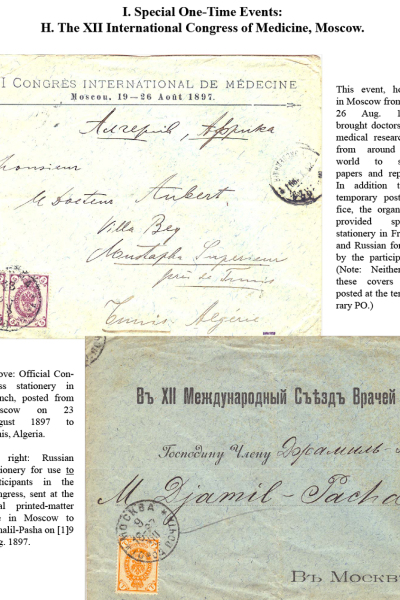 I. Special One-Time Events:
H. The XII International Congress of Medicine, Moscow.
I CONGRÈS INTERNATIONAL DE MÉDECINE
Moscou, 19—26 Août 1897.
Алжерія, Африка
onsieur
le Docteur Aubert
Villa Bey
Mustapha Supérieur
près de Tunis
Tunis Algérie
This event, he
in Moscow from
26 Aug. 1
brought doctors
medical research
from around
world to s
papers and rep
In addition t
temporary post
fice, the organ
provided sp
stationery in Fr
and Russian for
by the particip
(Note: Neither
these covers
posted at the ten
rary PO.)
ove: Official Con-
ss stationery in
nch, posted from
scow on 23
gust 1897 to
nis, Algeria.
right: Russian
tionery for use to
ticipants in the
ngress, sent at the
al printed-matter
e in Moscow to
malil-Pasha on [1]9
g. 1897.
Въ XII Международный Съѣздъ Врачей
Господину Члену
M Djamil-Pacha
МОСКВА
Въ Москв